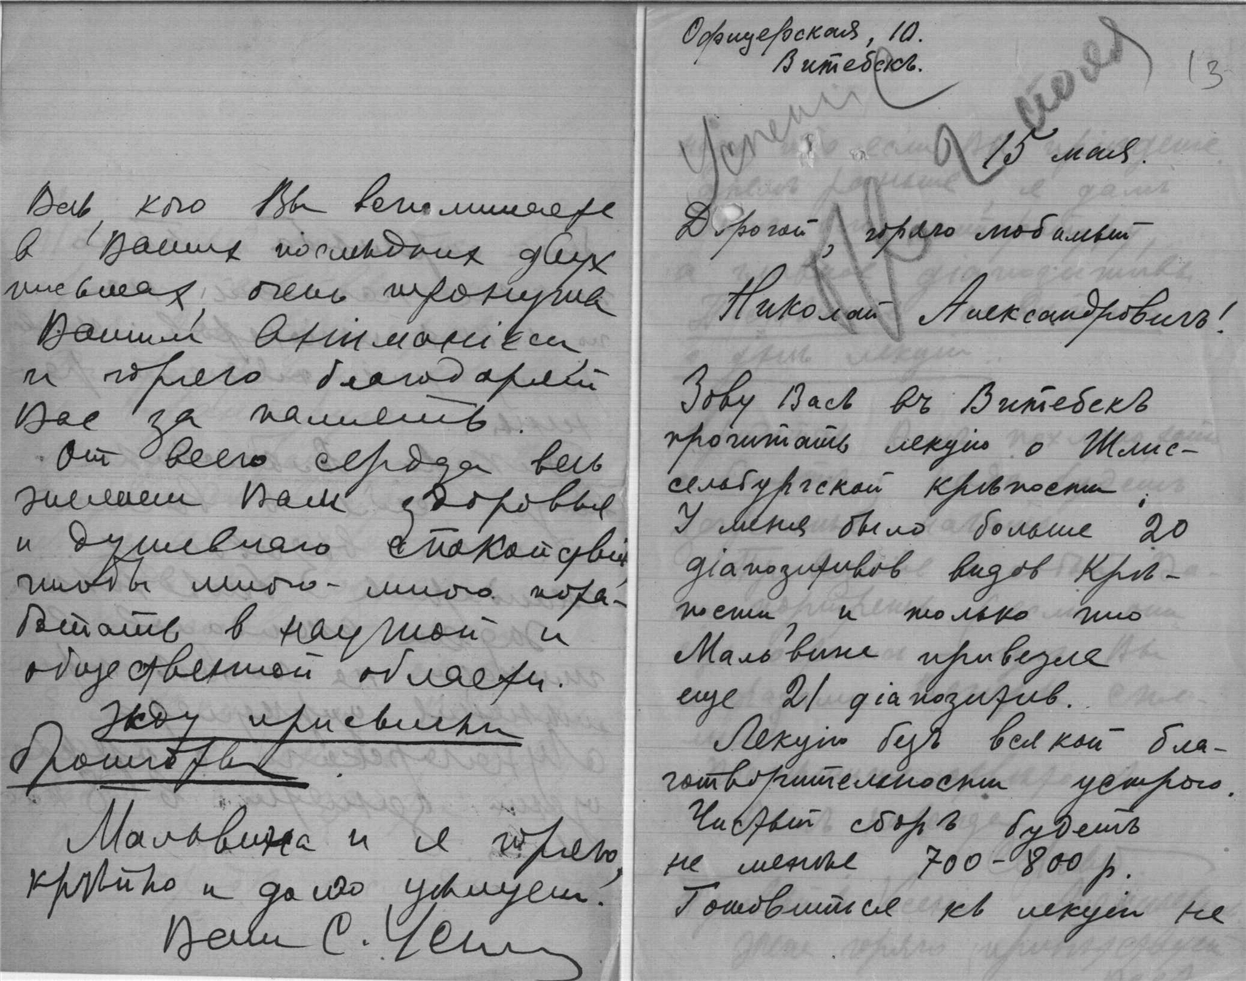 Всѣ, кого Вы вспоминаете
в Ваших послѣдних двух
письмах, очень тронуты
Вашим вниманіем
и горячо благодарят
Вас за память.
От всего сердца всѣ
желаем Вам здоровья
и душевнаго спокойствія
чтобы много-много пора-
ботать в научной и
общественной области.
Жду присылки
брошюры
Мальвина и я горячо,
крѣпко и долго цѣлуем!
Ваш С. Усп
Офицерская, 10.
Витебскъ.
13
Успенск
15 мая.
Дорогой, горячо любимый
Николай Александровичъ!
Зову Васъ въ Витебскъ
прочитать лекцію о Шлис-
сельбургской крѣпости.
У меня было больше 20
діапозитивов видов Крѣ-
пости, и только что
Мальвина привезла
еще 21 діапозитив.
Лекцію безъ всякой бла-
готворительности устрою.
Чистый сборъ будетъ
не меньше 700-800 р.
Готовиться къ лекціи не